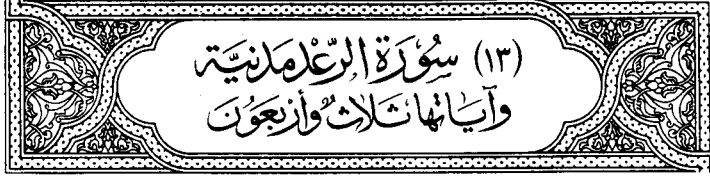 (١٣) سُوْرَةُ الرَّعْدِ مَدَنِيَّة
وَآيَاتُهَا ثَلَاثٌ وَأَرْبَعُونَ